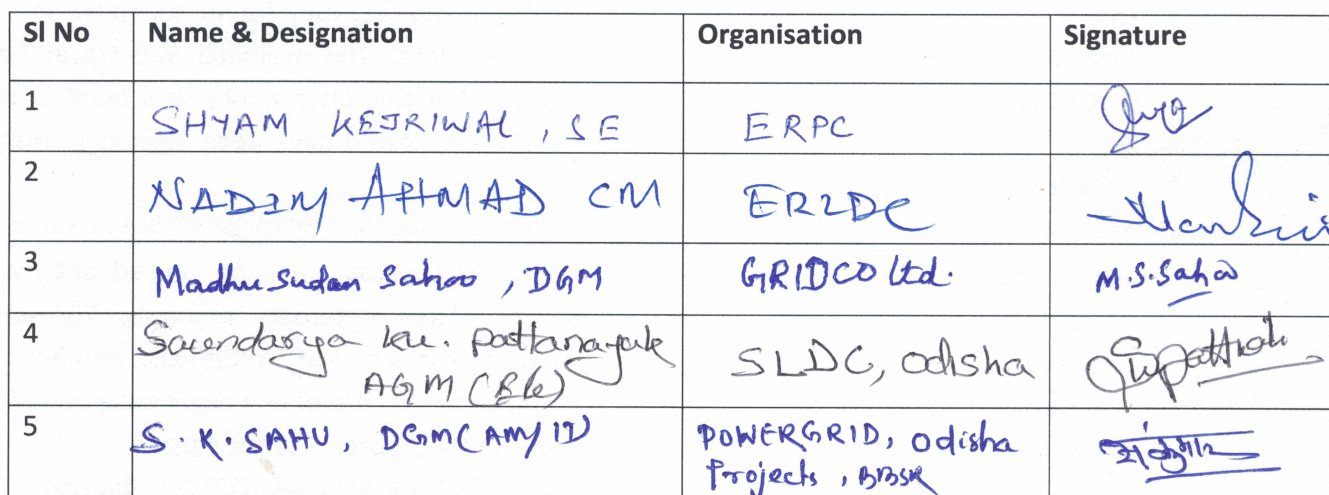 Sl No Name & Designation Organisation Signature
1 SHYAM KEJRIWAL, SE ERPC
2 NADIM AHMAD CM ERLDC
3 Madhu Sudan Sahoo, DGM GRIDCO Ltd. M.S.Sahoo
4 Soundarya ku. pattanayak SLDC, odisha
AGM (Ele)
5 S.K. SAHU, DGM (AM/ID) POWERGRID, Odisha
Projects, BBSR